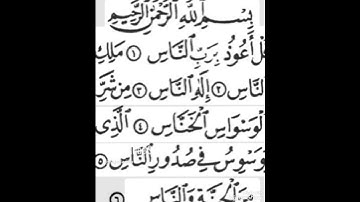 بِسْمِ اللَّهِ الرَّحْمَٰنِ الرَّحِيمِ
قُلْ أَعُوذُ بِرَبِّ النَّاسِ ١ مَلِكِ
النَّاسِ ٢ إِلَٰهِ النَّاسِ ٣ مِن شَرِّ
الْوَسْوَاسِ الْخَنَّاسِ ٤ الَّذِي
يُوَسْوِسُ فِي صُدُورِ النَّاسِ ٥
مِنَ الْجِنَّةِ وَالنَّاسِ ٦